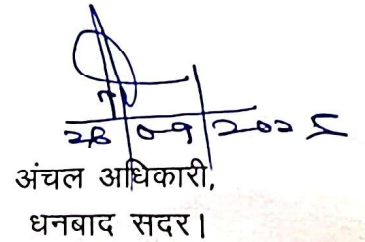 28/09/2025
अंचल अधिकारी,
धनबाद सदर।